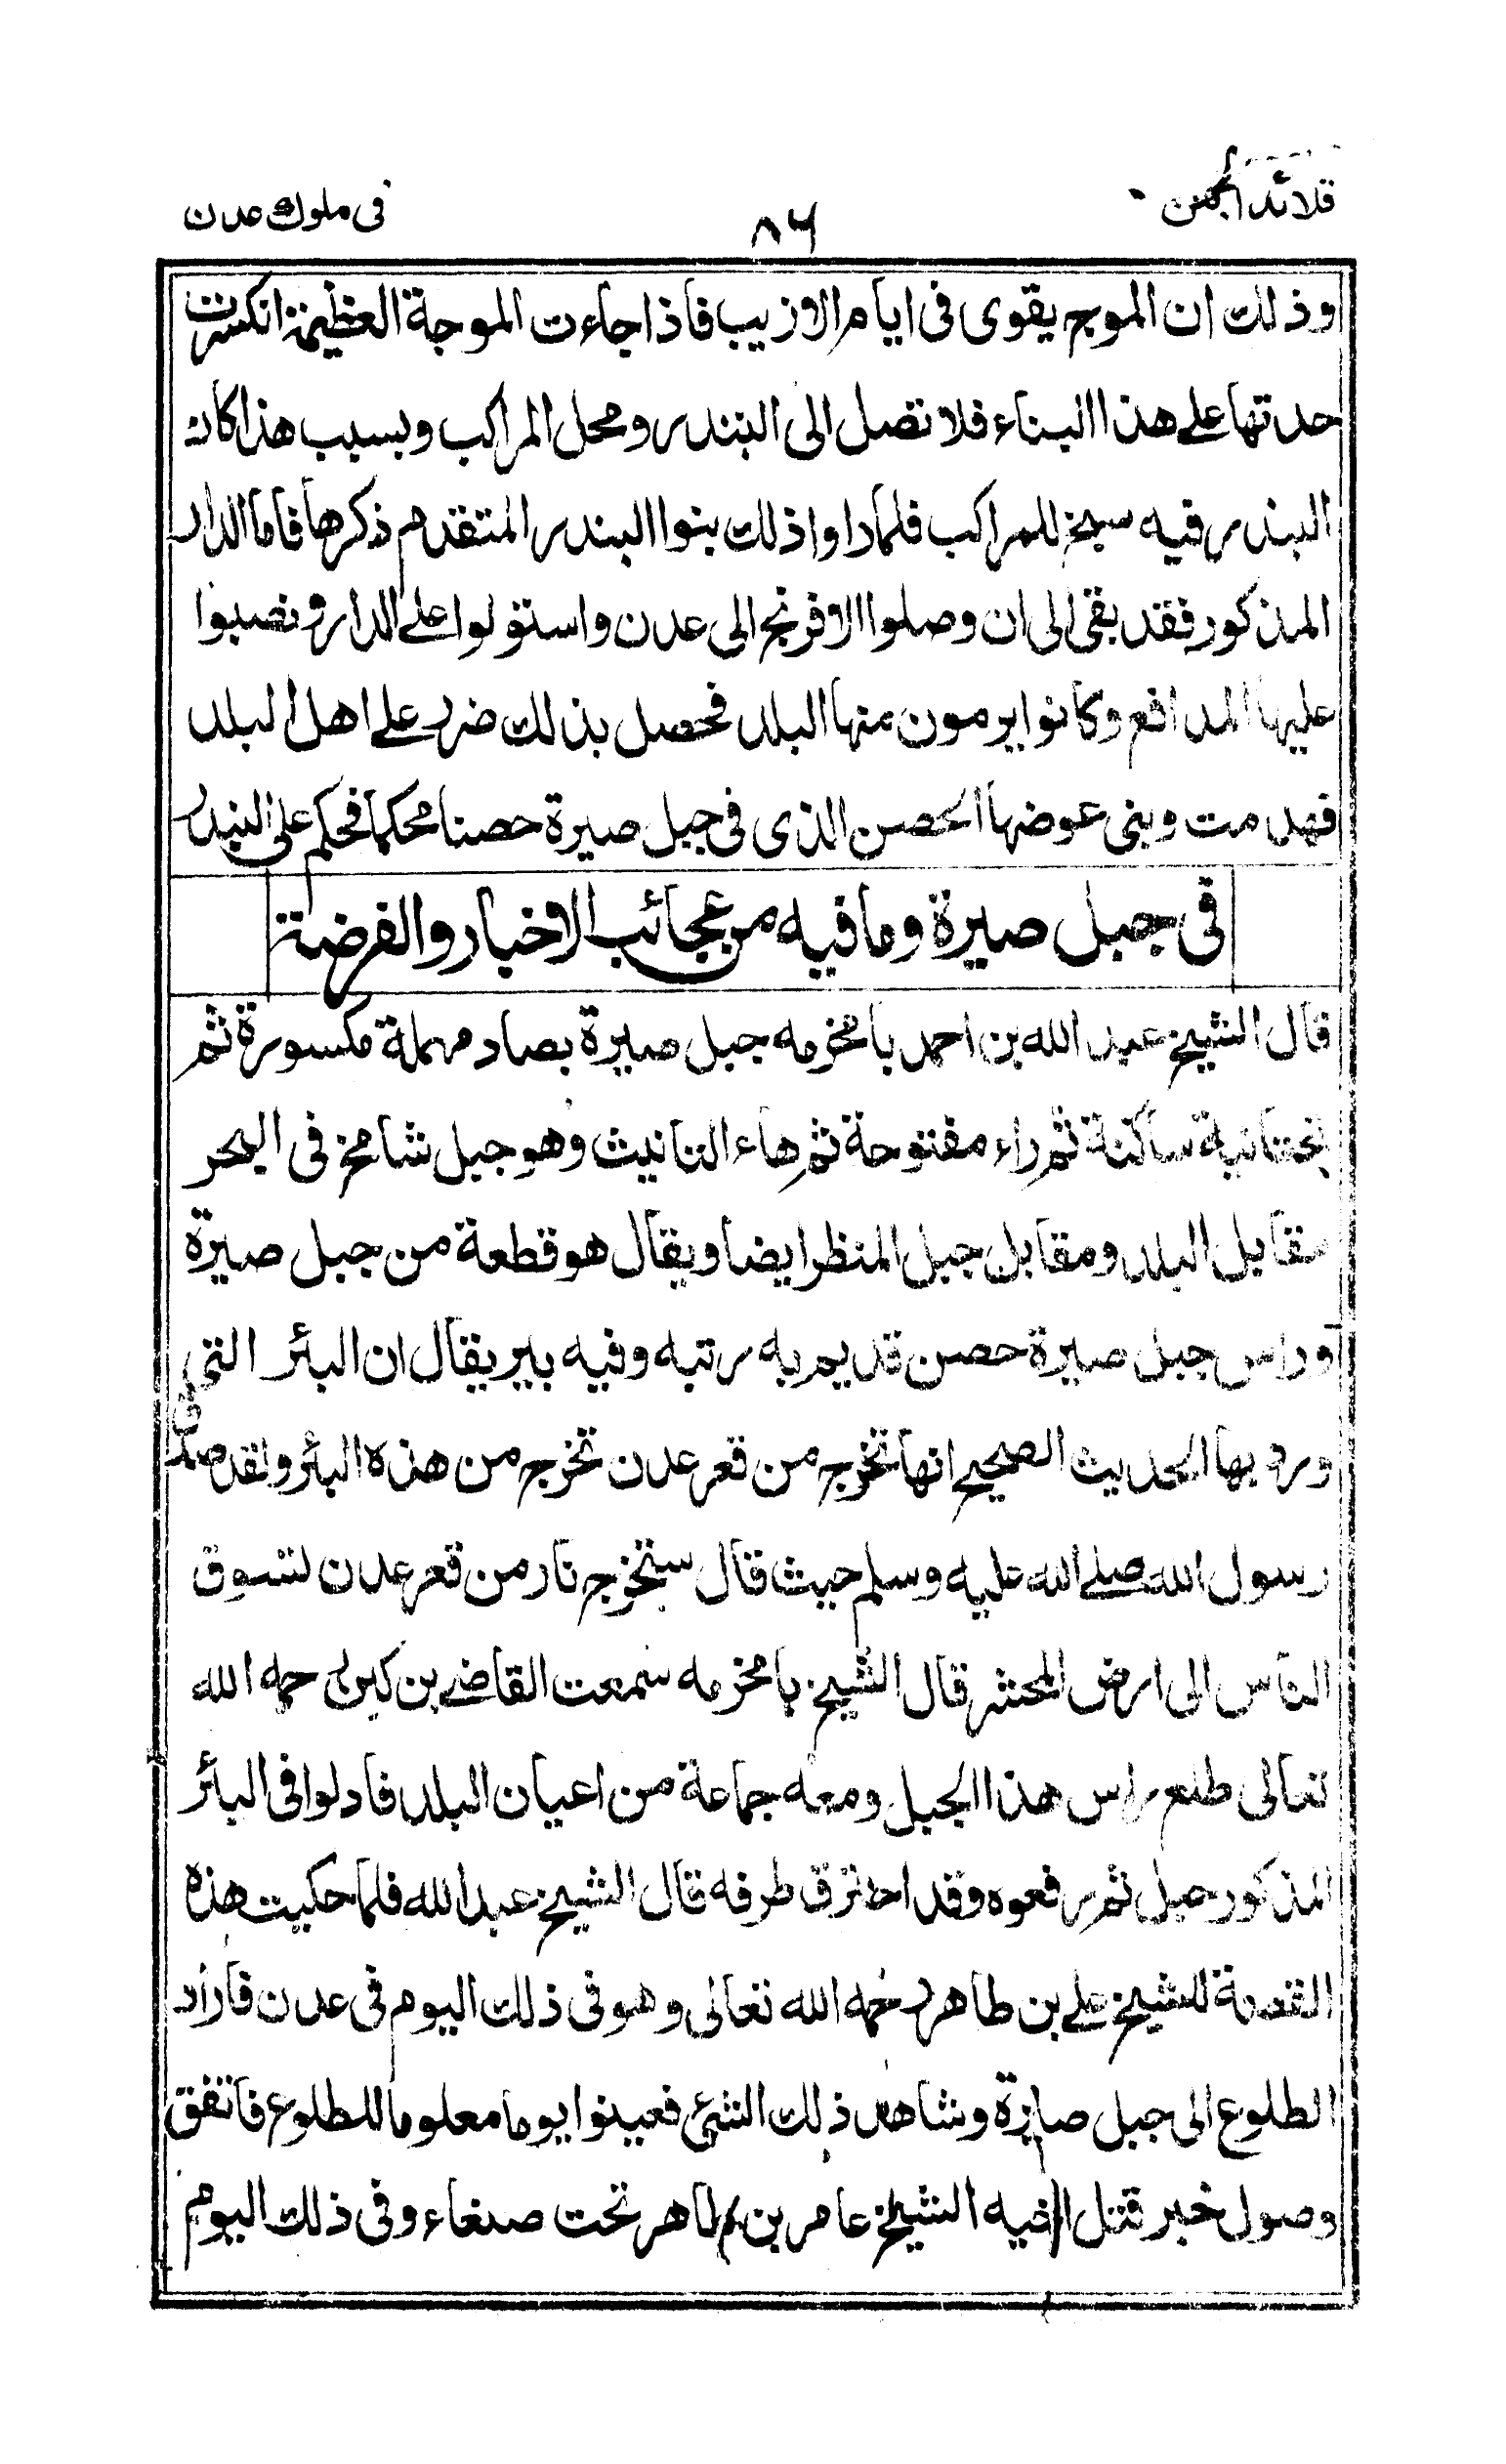 قلائد الجمن
٨٦
فى ملوك عدن
وذلك ان الموج يقوى فى ايام الازيب فاذا جاءت الموجة العظيمة انكسرت
حدتها على هذا البناء فلا تصل الى البندر ومحل المراكب وبسبب هذا كان
البندر فيه سبخ للمراكب فلما داوا ذلك بنوا البندر المتقدم ذكرها فاما الدار
المذكور فقد بقى الى ان وصلوا الافرنج الى عدن واستولوا على الدار ونصبوا
عليها المدافع وكانوا يرمون منها البلد فحصل بذلك ضرر على اهل البلد
فهدمت وبنى عوضها الحصن الذى فى جبل صيرة حصنا محكما فحكم على البندر
فى جبل صيرة وما فيه من عجائب الاخبار والفرضة
قال الشيخ عبد الله بن احمد بامخرمه جبل صيرة بصاد مهملة مكسورة ثم
تحتانية ساكنة ثم راء مفتوحة ثم هاء التانيث وهو جبل شامخ فى البحر
مقابل البلد ومقابل جبل المنظر ايضا ويقال هو قطعة من جبل صيرة
وراس جبل صيرة حصن قديم به رتبه وفيه بير يقال ان البئر التى
ورد بها الحديث الصحيح انها تخرج من قعر عدن تخرج من هذه البئر ولقد صدق
رسول الله صلى الله عليه وسلم حيث قال ستخرج نار من قعر عدن تسوق
الناس الى ارض المحشر قال الشيخ بامخرمه سمعت القاضى بن كبن رحمه الله
تعالى طلع راس هذا الجبل ومعه جماعة من اعيان البلد فادلوا فى البئر
المذكور حبل ثم رفعوه وقد احترق طرفه قال الشيخ عبد الله فلما حكيت هذه
القصة للشيخ على بن طاهر رحمه الله تعالى وهو فى ذلك اليوم فى عدن فاراد
الطلوع الى جبل صيرة وشاهد ذلك الشئ فعينوا يوما معلوما للطلوع فاتفق
وصول خبر قتل اخيه الشيخ عامر بن طاهر تحت صنعاء وفى ذلك اليوم